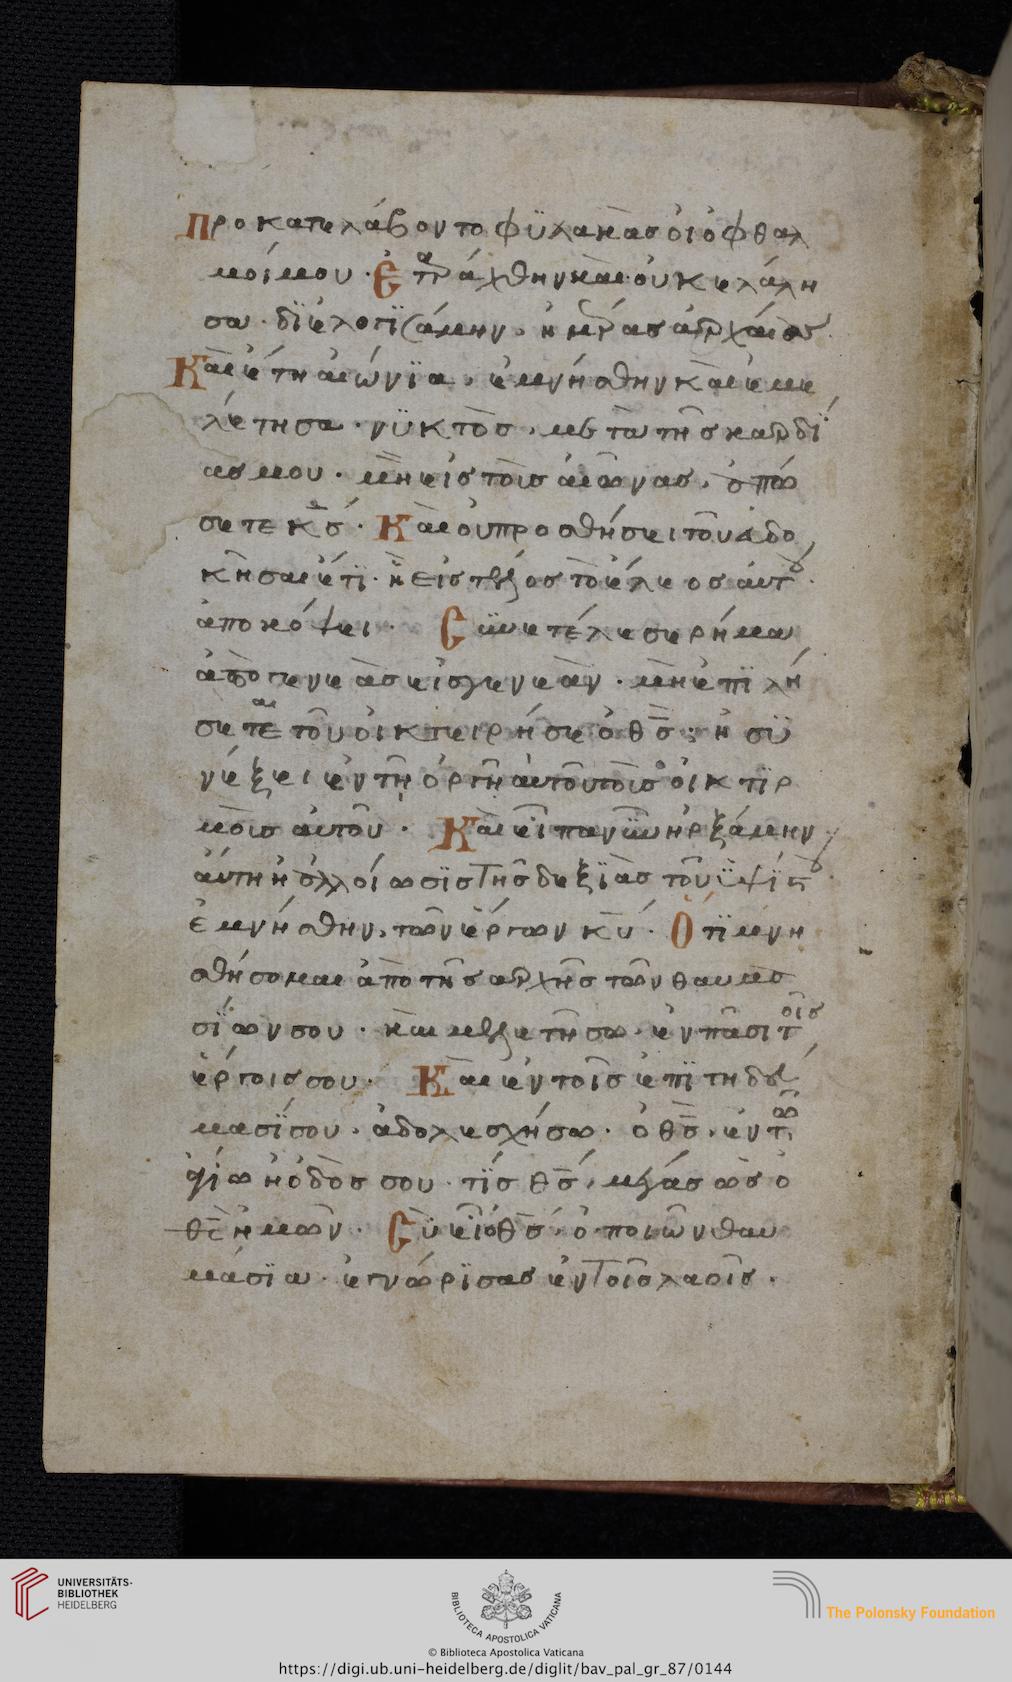 Προκατελάβοντο φϋλακὰσ ὁι ὀφθαλ
μοί μου · Ἐταράχθην καὶ ὀυκ ελάλη
σα · δϊελογϊσάμην, ἡμέρασ ἀρχαίασ
Καὶ ἔτη αἰώνϊα, ἐμνήσθην καὶ ἐμε
λέτησα · νϋκτὸσ, μετὰ τῆσ καρδί
ασ μου · μὴ εἰσ τοὺσ αἰῶνασ, ἀπώ
σεται κ̅σ̅ · Καὶ ὀυ προσθήσει τοῦ ἐυδο
κῆσαι ἔτϊ · ἢ εἰσ τέλοσ τὸ ἔλεοσ ἀυτοῦ
ἀποκόψει · Σϋνετέλεσε ρήμα
ἀπὸ γενεᾶσ εἰσ γενεὰν · μὴ ἐπϊλή
σεται τοῦ οἰκτειρήσε ὁ θ̅σ̅ · ἢ σϋ
νέξει ἐν τῆ ὀργῆ ἀυτοῦ τοὺσ οἰκτϊρ
μοὺσ ἀυτοῦ · Καὶ εἶπα νῦν ἠρξάμην
ἅυτη ἡ ἀλλοίωσϊσ τῆσ δεξϊᾶσ τοῦ ὑψϊστου
Ἐμνήσθην, τῶν ἔργων κ̅υ̅ · Ὅτϊ μνη
σθήσομαι ἀπο τῆσ αρχῆσ τῶν θαυμα
σϊων σου · καὶ μελετήσω · ἐν πᾶσι τοῖσ
ἔργοισ σου · Καὶ ἐν τοῖσ ἐπϊτηδέυ
μασϊ σου, ἀδολεσχήσω · ὁ θ̅σ̅, ἐν τῶ
ἁγίω ἡ ὁδόσ σου · τϊσ θ̅σ̅, μέγασ ὡσ ὁ
θ̅σ̅ ἡμῶν · Σϋ εἶ ὁ θ̅σ̅, ὁ ποιῶν θαυ
μάσϊα · ἐγνώρϊσασ ἐν τοῖσ λαοῖσ ·
UNIVERSITÄTS-
BIBLIOTHEK
HEIDELBERG
BIBLIOTECA APOSTOLICA VATICANA
The Polonsky Foundation
© Biblioteca Apostolica Vaticana
https://digi.ub.uni-heidelberg.de/diglit/bav_pal_gr_87/0144